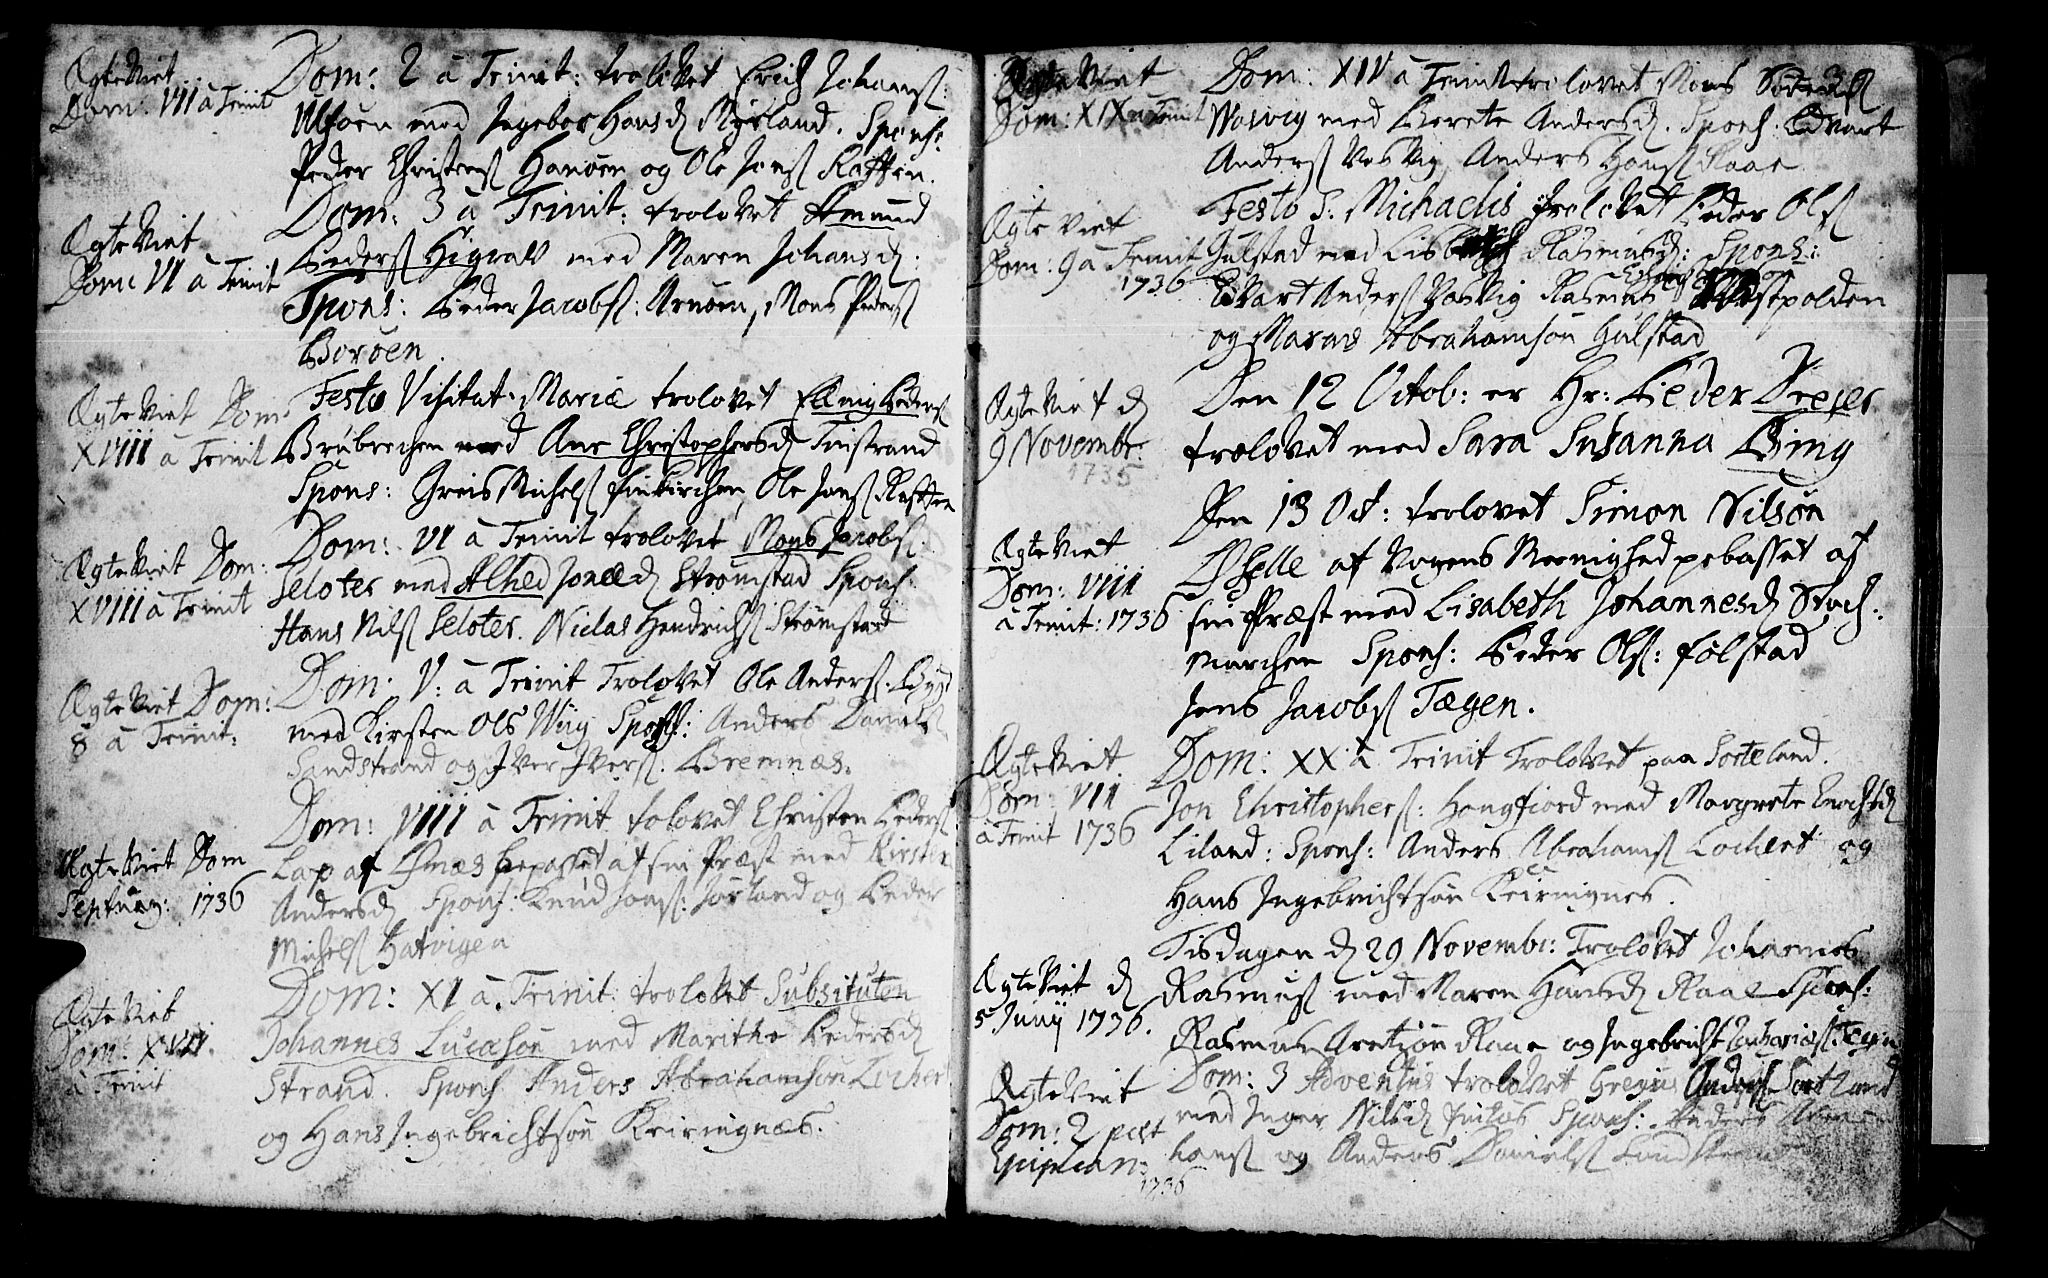 ÆgteViet
Dom: VII à Trinit
Dom: 2 à Trinit: troloVet Erich Johansß:
Ulføen med Ingebor Hansd Myrland. Sponß:
Peder Christensß Hanøen og Ole Jonsß Raften.
ÆgteViet
Dom: VI à Trinit
Dom: 3 à Trinit: troloVet Amund
Pedersß Higrav med Maren Johansd:
Spons: Peder Jacobsß: Arnøen, Mons Pedersß
Borøen.
ÆgteViet Dom:
XVIII à Trinit
Festo Visitat: Mariæ troloVet Elling Pedersß
Brubrechen med Ane Christophersd Finstrand
Spons: Greis Michelsß Finkirchen, Ole Jonsß Raften
ÆgteViet Dom:
XVIII à Trinit
Dom: VI à Trinit troloVet Mons Jacobsß
Seloter med Alhed Joned Strømstad Sponß:
Hans Nilsß Seloter. Niclas Hendrichsß Strømstad
ÆgteViet Dom:
8 à Trinit:
Dom: V: à Trinit TroloVet Ole Andersß.
med Kirsten Ols Wiig Sponß: Anders Daniels
Sandstrand og IVer IVersß. Bremnæs.
ÆgteViet Dom
Septuag: 1736
Dom: VIII à Trinit tolovet Christen Pedersß
Lap af Efnæs bepasset af sin Præst med Kirsten
Andersd Sponß: Knud Jonsß: Jørland og Peder
Michelsß Hatvigen
ÆgteViet
Dom: XVII.
à Trinit
Dom: XI à Trinit: troloVet Subsituten
Johannes Lucæsøn med Marithe Pedersd
Strand. Sponß Anders Abrahamsøn Locher
og Hans Ingebrichtsøn Keiringnæs.
ÆgteViet
Dom: XIX à Trinit
Dom: XIV à Trinit trolovet Mons
Wosvig med Berete Andersd. Sponß: Edvart
Andersß VosVig, Anders Hansß Raae
ÆgteViet
Dom: 9 à Trinit
1736
Festo S: Michaelis troloVet Peder Olsß
Gulstad med Rasmusd: Sponß:
EdVart Andersß VosVig Rasmus Vestpolden
og Marcus Abrahamsøn Gulstad
ÆgteViet d
9 Novembr:
1735
Den 12 Octob: er Hr: Peder Dreyer
troloVet med Sara Susanna Bing
ÆgteViet
Dom: VIII
à Trinit: 1736
Den 13 Oct: troloVet Simon Nilsøn
af Vogens Meenighed pebasset af
sin Præst med Lisabeth Johannesd Stoch:
marchen Sponß: Peder Olsß: Følstad
Jens Jacobsß Tægen.
ÆgteViet.
Dom: VII
à Trinit 1736
Dom: XX à Trinit TroloVet paa Sorteland.
Jon Christophersß: Hongfiord med Margrete Enochsd
Liland: Sponß: Anders Abrahamsß Lochert og
Hans Ingebrichtsøn Keiringnes.
ÆgteViet d
5 Junij 1736.
Tisdagen d 29 Novembr: TroloVet Johannes
Rasmusß med Maren Hansd Raae Sponß:
Rasmus Aretsøn Raae og Ingebricht Zachariæsß. Tægen
ÆgteViet
Dom: 2 post
Epiphan:
1736
Dom: 3 Adventus troloVet Gregius Andersß Sortland
med Inger Nilsd Sponß: Anders
hansß og Anders Danielsß